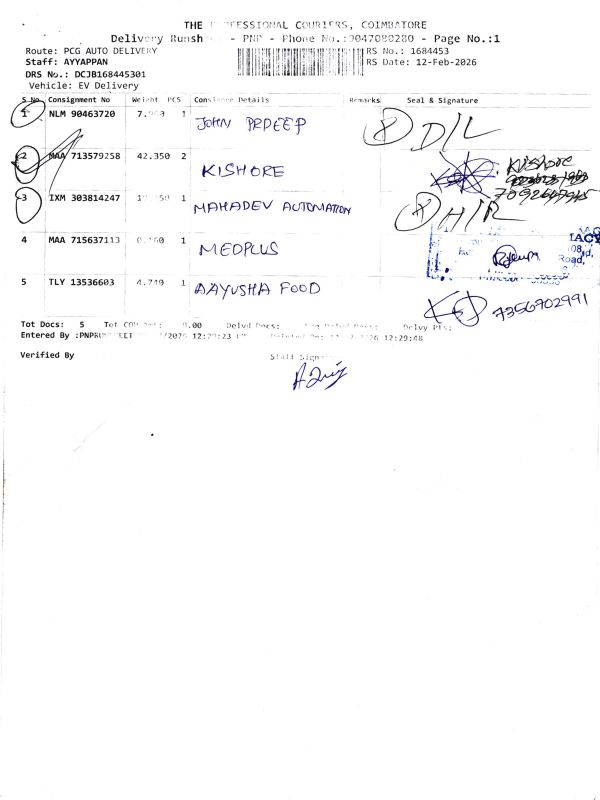 THE PROFESSIONAL COURIERS, COIMBATORE
Delivery Runsheet - PNP - Phone No.:9047080280 - Page No.:1
Route: PCG AUTO DELIVERY
RS No.: 1684453
Staff: AYYAPPAN
RS Date: 12-Feb-2026
DRS No.: DCJB168445301
Vehicle: EV Delivery
S.No Consignment No Weight PCS Consignee Details Remarks Seal & Signature
1 NLM 90463720 1 JOHN PRDEEP D/L
2 MAA 713579258 42.350 2 KISHORE Kishore
3 IXM 303814247 1 MAHADEV AUTOMATION H/R
4 MAA 715637113 0.160 1 MEDPLUS
Road,
5 TLY 13536603 4.740 1 AAYUSHA FOOD 7356902991
Tot Docs: 5 Tot COD Amt: 0.00 Delvd Docs: Delvy Pts:
Entered By :PNPRUNSHEET 12:29:23 12:29:48
Verified By Staff Signature